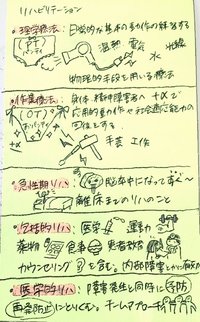 リハビリテーション
・理学療法:日常的な基本的動作の練習をする
(PT)
温熱 電気 水 光線
物理的手段を用いる療法
・作業療法:身体・精神障害者へ +αで
(OT)
応用的動作や社会適応能力の
回復をする
+α
手芸 工作
・急性期リハ:脳卒中になってすぐ〜
離床までのリハのこと
・包括的リハ:医学 運動
薬物 食事 患者教育
カウンセリング を含む。内部障害
・医学的リハ:障害発生と同時に予防
再発防止にとりくむ。チームアプローチ